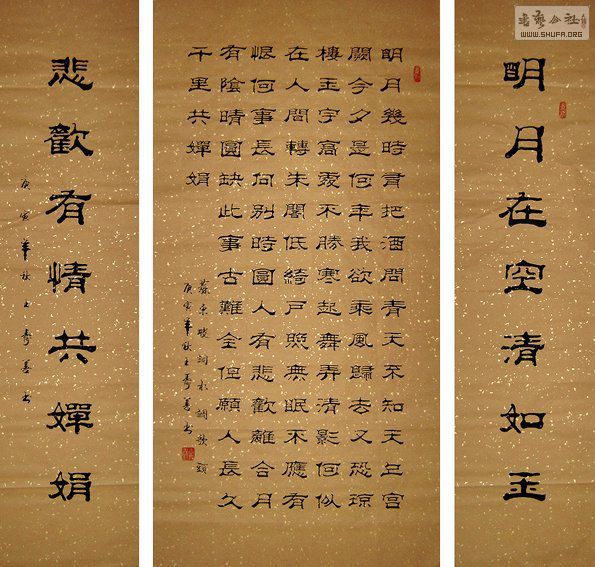 书艺公社
WWW.SHUFA.ORG
明月在空清如玉
明月幾時有把酒問青天不知天上宮
闕今夕是何年我欲乘風歸去又恐瓊
樓玉宇高處不勝寒起舞弄清影何似
在人間轉朱閣低綺戶照無眠不應有
恨何事長向別時圓人有悲歡離合月
有陰晴圓缺此事古難全但願人長久
千里共嬋娟
蘇東坡詞水調歌頭
庚寅年秋王寿善书
悲歡有情共嬋娟
庚寅年秋王寿善书